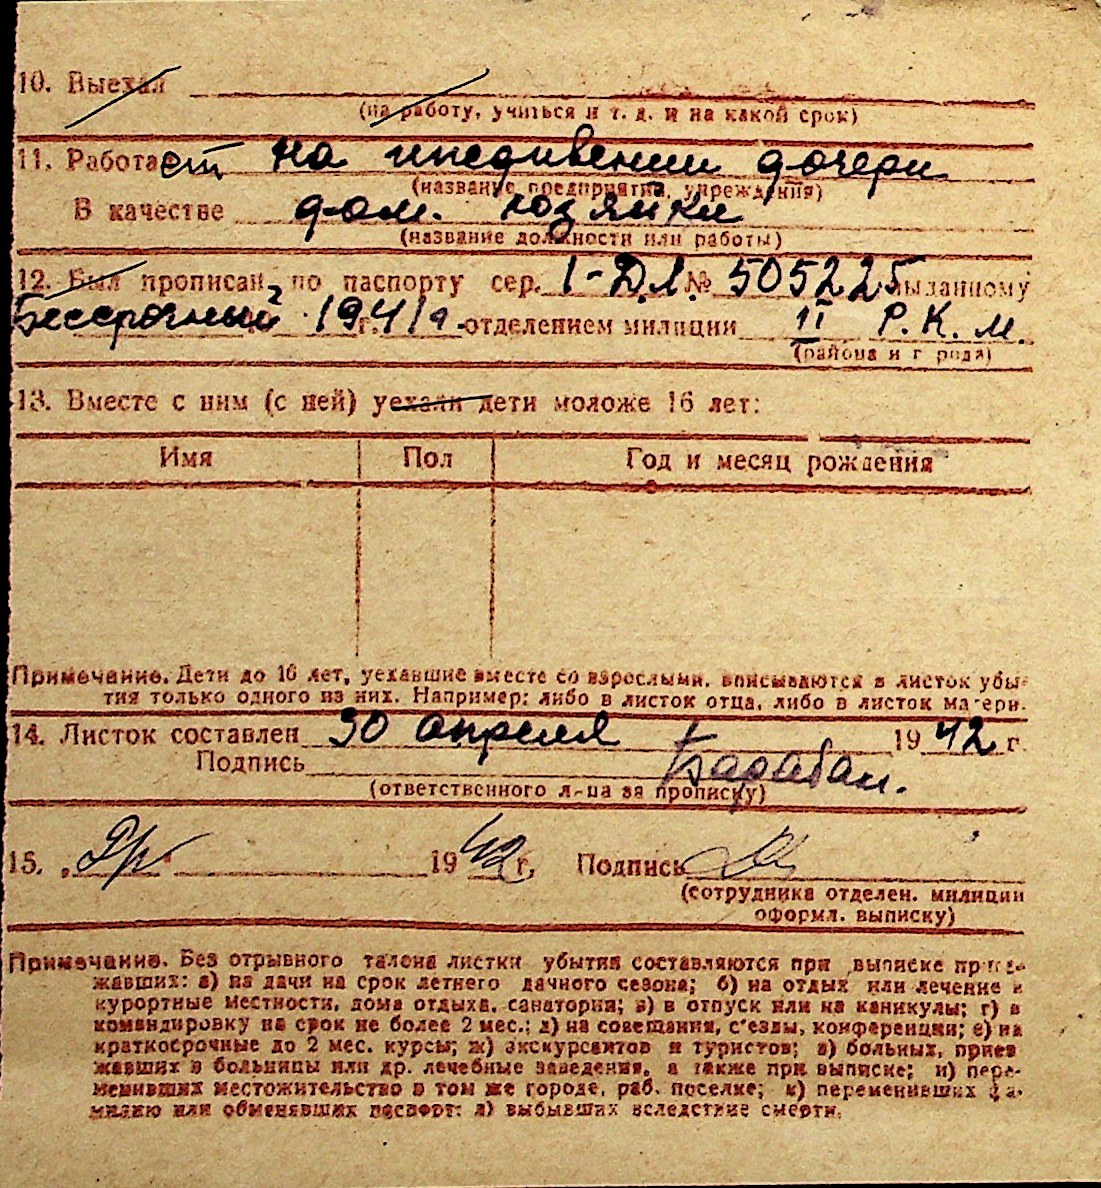 10. Выехал
(на работу, учиться и т. д. и на какой срок)
11. Работает на иждивении дочери
(название предприятия, учреждения)
В качестве дом. хозяйки
(название должности или работы)
12. Был прописан, по паспорту сер. I-Д.Л. № 505225 выданному
Бессрочный 1941 г. отделением милиции II Р.К.М.
(района и города)
13. Вместе с ним (с ней) уехали дети моложе 16 лет:
Имя Пол Год и месяц рождения
Примечание. Дети до 16 лет, уехавшие вместе со взрослыми, вписываются в листок убы-
тия только одного из них. Например: либо в листок отца, либо в листок матери.
14. Листок составлен 30 апреля 1942 г.
Подпись Барабан.
(ответственного л-ца за прописку)
15. 1942 г. Подпись
(сотрудника отделен. милиции
оформл. выписку)
Примечание. Без отрывного талона листки убытия составляются при выписке приез-
жавших: а) на дачи на срок летнего дачного сезона; б) на отдых или лечение в
курортные местности, дома отдыха, санатории; в) в отпуск или на каникулы; г) в
командировку на срок не более 2 мес.; д) на совещания, с'езды, конференции; е) на
краткосрочные до 2 мес. курсы; ж) экскурсантов и туристов; з) больных, приез
жавших в больницы или др. лечебные заведения, а также при выписке; и) пере-
менивших местожительство в том же городе, раб. поселке; к) переменивших фа-
милию или обменявших паспорт; л) выбывших вследствие смерти.